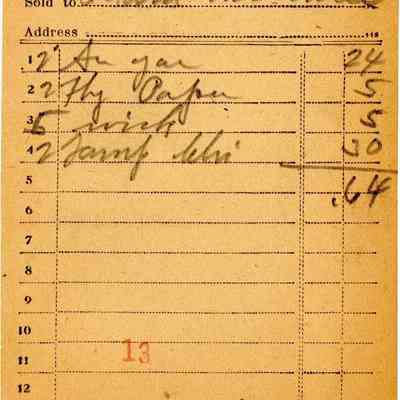 Sold to
Address 118
1 2 24
2 2 Fly Paper 5
3 5 wick 5
4 2 Lamp Chi 30
5 .64
6
7
8
9
10
11 13
12